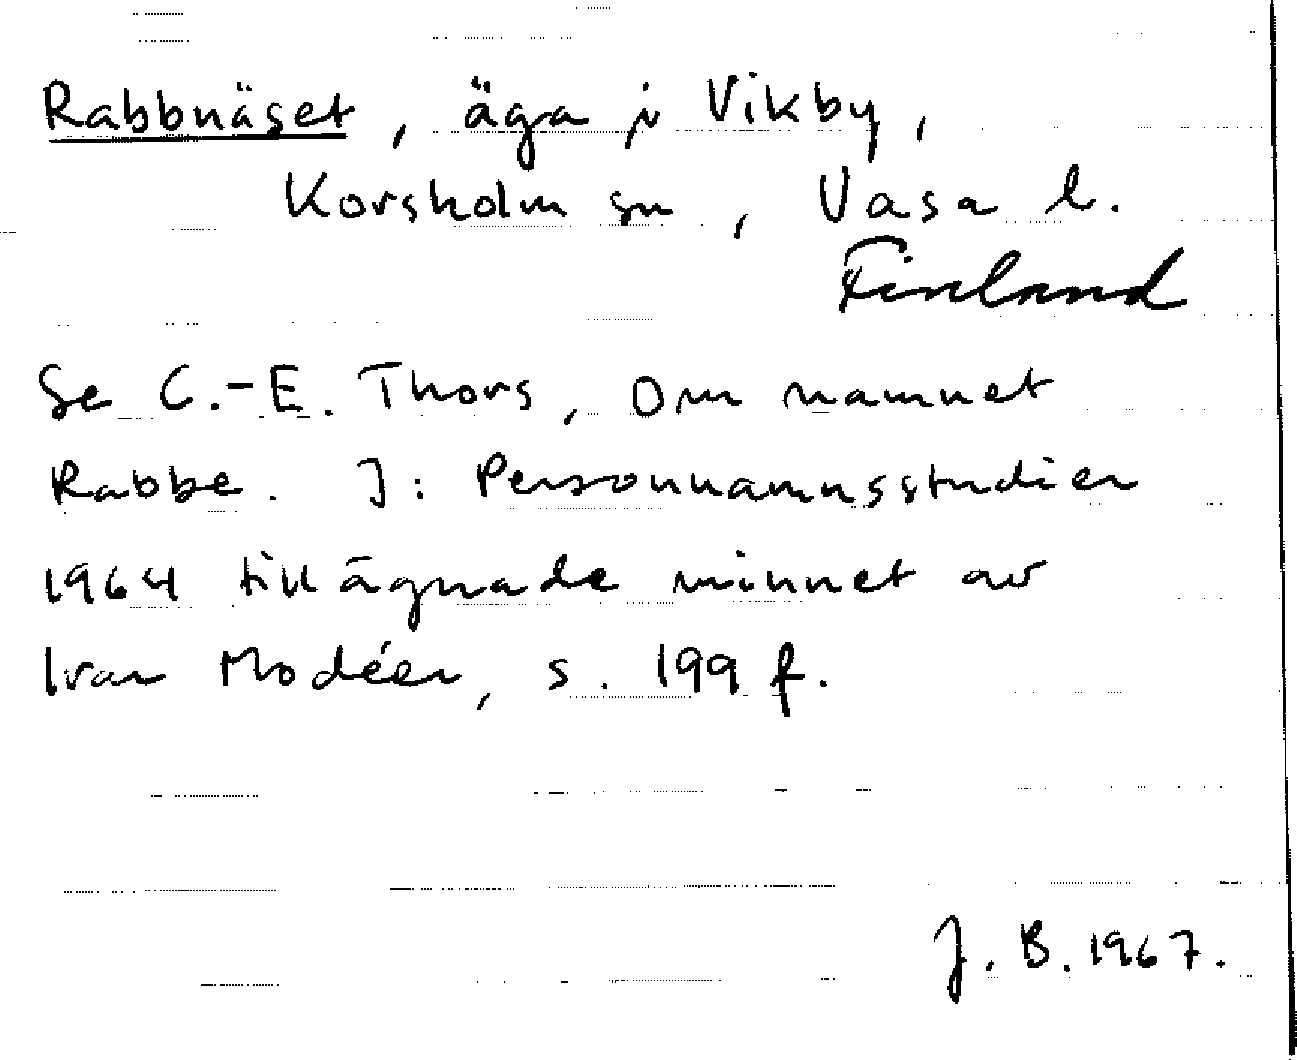 Rabbnäset, äga i Vikby,
Korsholm sn, Vasa l.
Finland
Se C.-E. Thors, Om namnet
Rabbe. I: Personnamnsstudier
1964 tillägnade minnet av
Ivar Modéer, s. 199 f.
J. B. 1967.